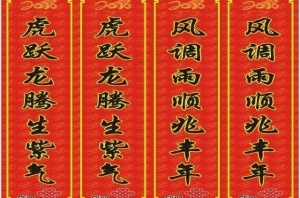 虎跃龙腾生紫气
虎跃龙腾生紫气
风调雨顺兆丰年
风调雨顺兆丰年